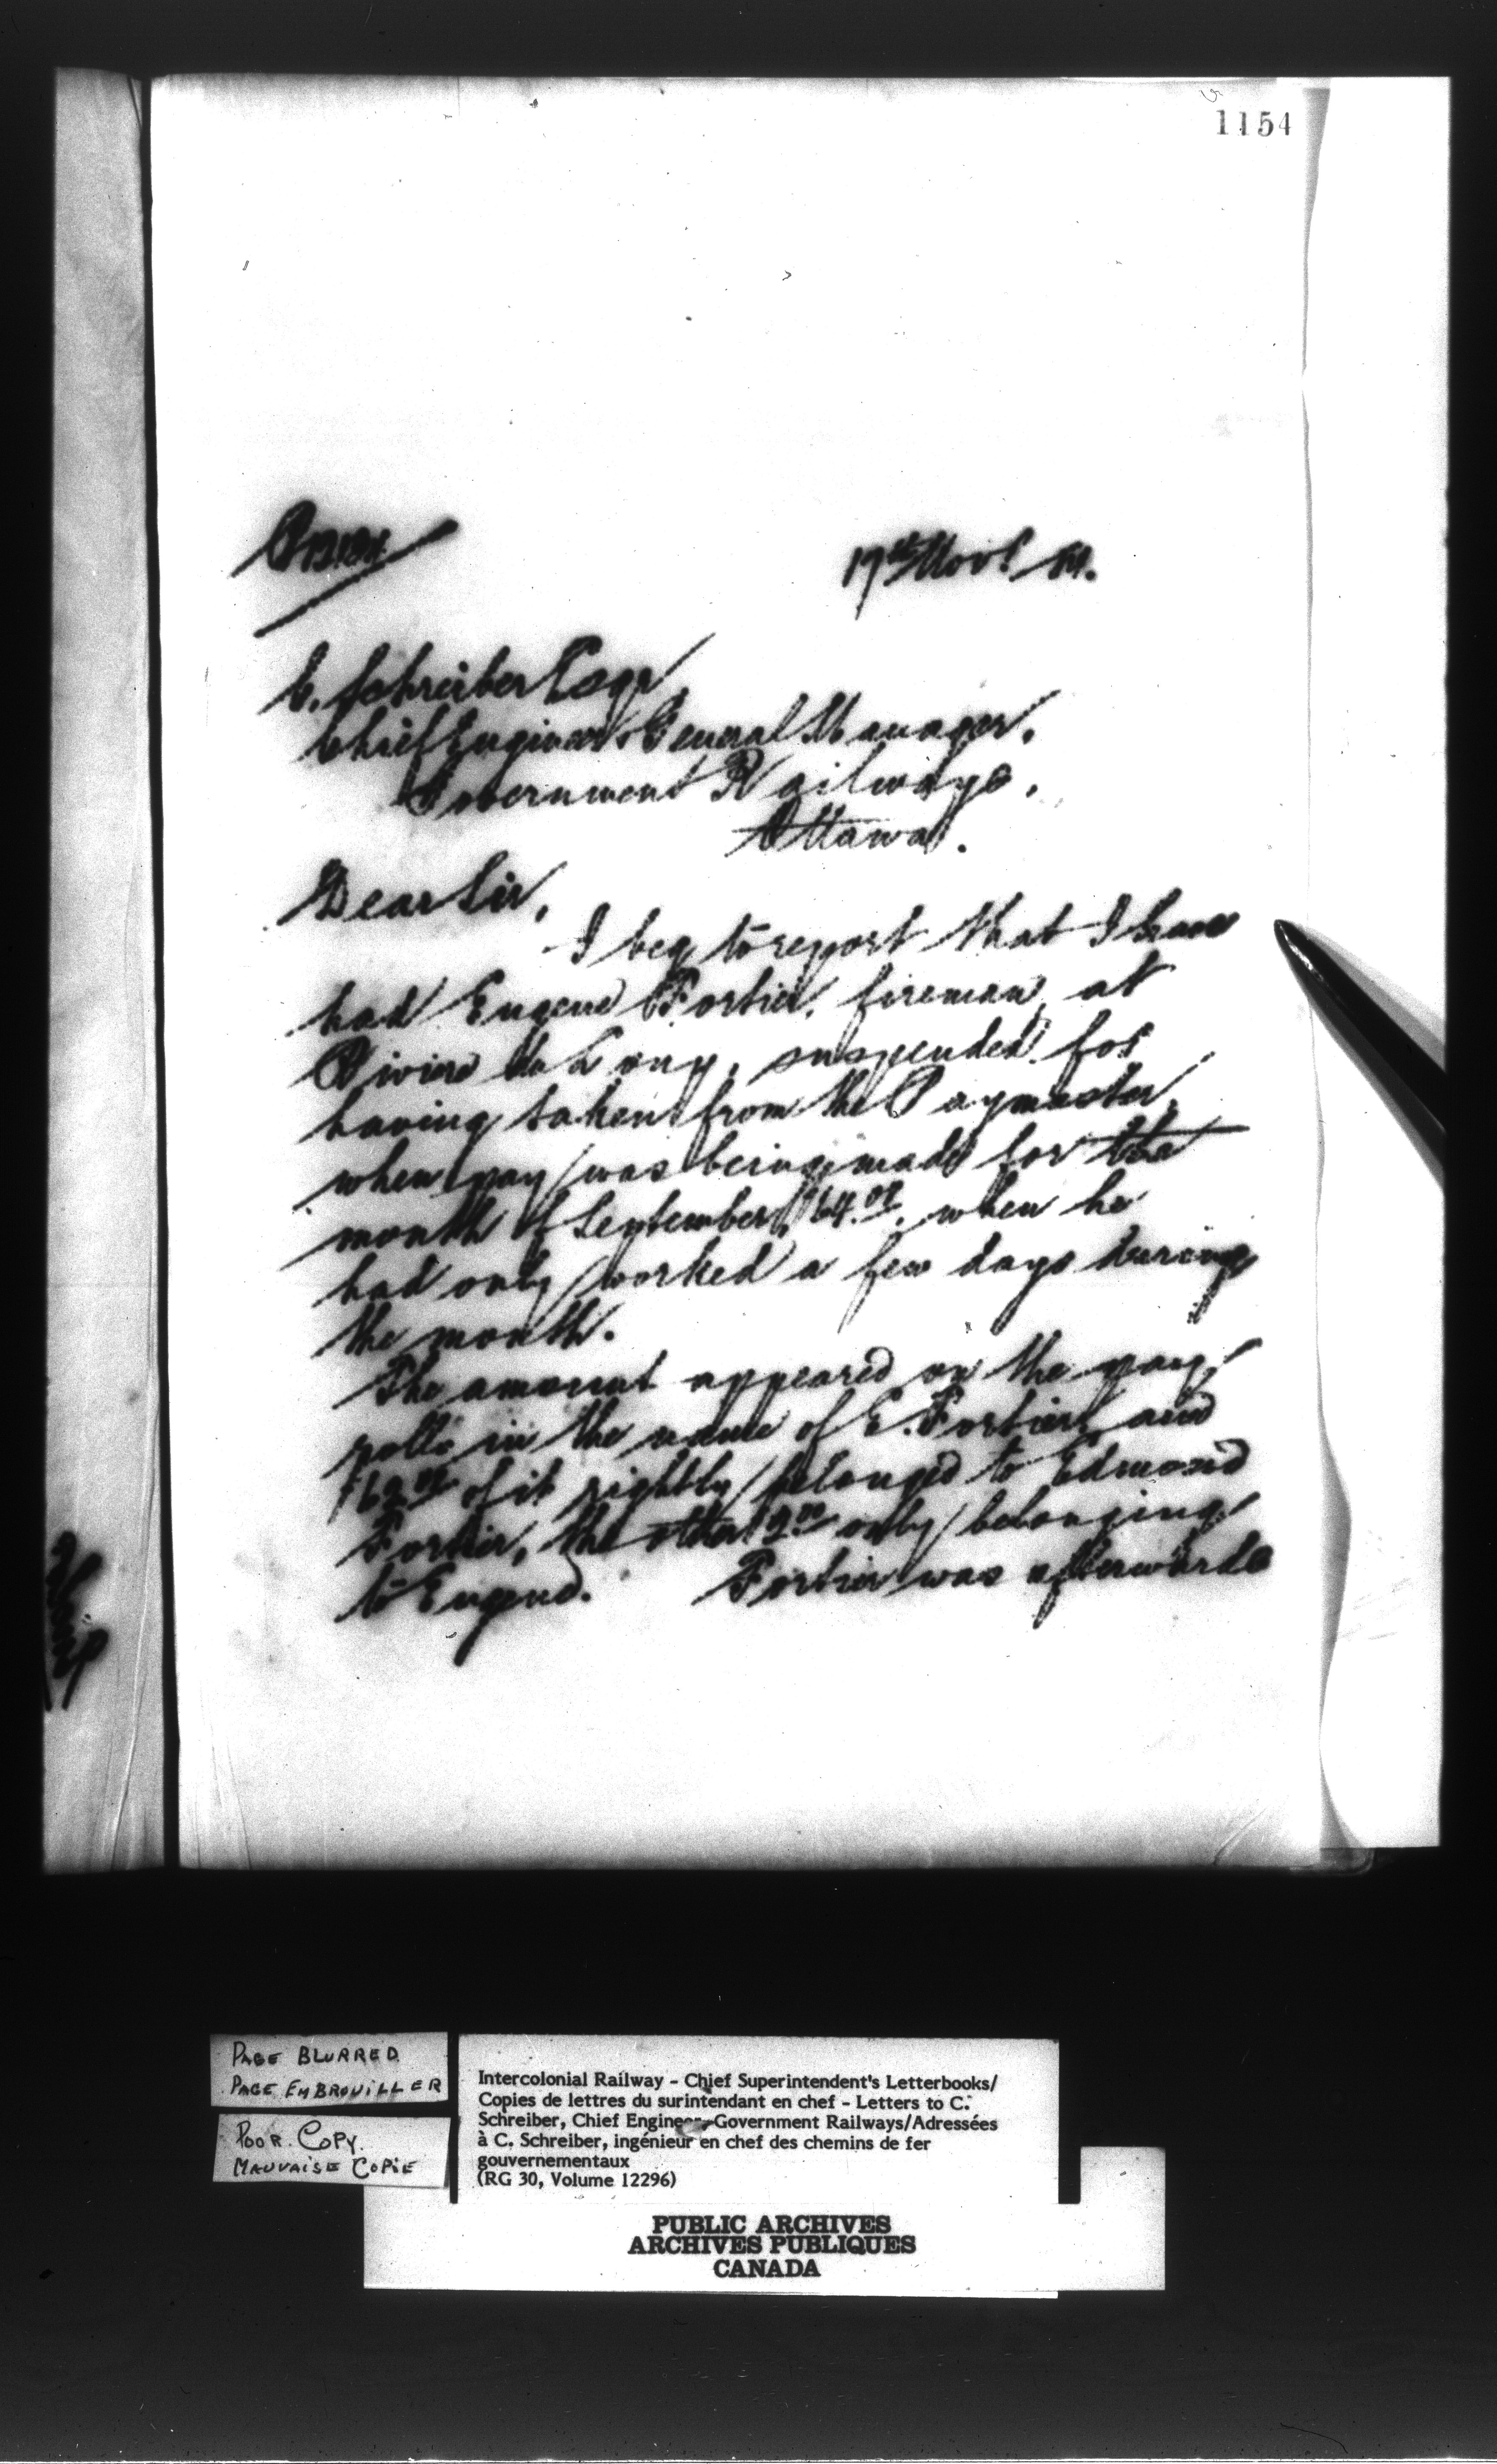 1154
17th Novr. 84.
C. Schreiber Esqr,
Chief Engineer & General Manager,
Government Railways,
Ottawa.
Dear Sir,
I beg to report that I have
had Eugene Fortier, fireman, at
Riviere du Loup, suspended for
having taken from the Paymaster,
when pay was being made for the
month of September, when he
had only worked a few days during
the month.
The amount appeared on the pay
rolls in the name of E. Fortier, and
of it rightly belonged to Edmond
Fortier, the other only belonging
to Eugene. Fortier was afterwards
PAGE BLURRED
PAGE EMBROUILLER
POOR. COPY.
MAUVAISE COPiE
Intercolonial Railway - Chief Superintendent's Letterbooks/
Copies de lettres du surintendant en chef - Letters to C.
Schreiber, Chief Engineer-Government Railways/Adressées
à C. Schreiber, ingénieur en chef des chemins de fer
gouvernementaux
(RG 30, Volume 12296)
PUBLIC ARCHIVES
ARCHIVES PUBLIQUES
CANADA